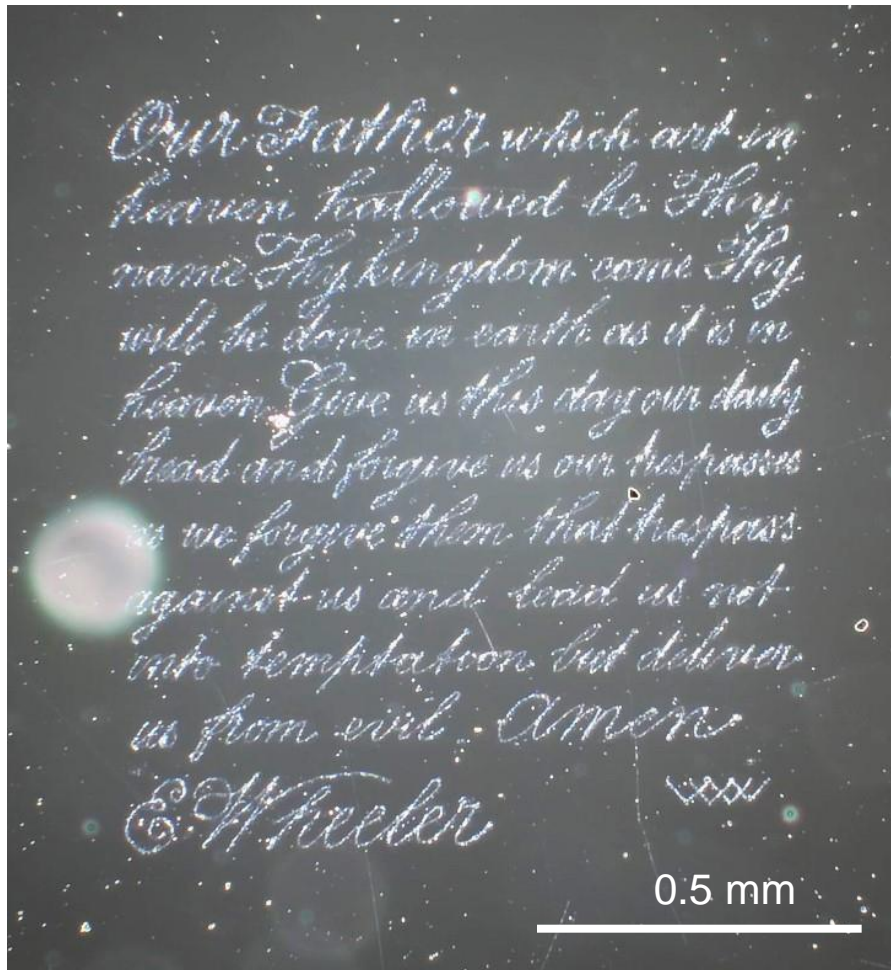 Our Father which art in
heaven hallowed be Thy
name Thy kingdom come Thy
will be done in earth as it is in
heaven Give us this day our daily
bread and forgive us our trespasses
as we forgive them that trespass
against us and lead us not
into temptation but deliver
us from evil. Amen
E Wheeler
0.5 mm